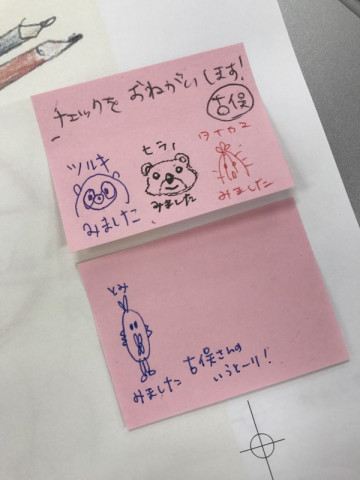 チェックを おねがいします!
古俣
ツルキ
みました
ヒラノ
みました
タイカユ
みました
とみ
みました
古俣さんの
いうとーり!